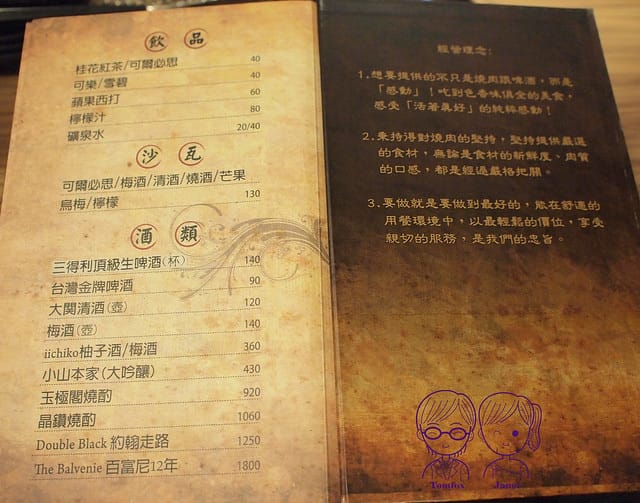 飲品
桂花紅茶/可爾必思 40
可樂/雪碧 40
蘋果西打 60
檸檬汁 80
礦泉水 20/40
沙瓦
可爾必思/梅酒/清酒/燒酒/芒果
烏梅/檸檬 130
酒類
三得利頂級生啤酒(杯) 140
台灣金牌啤酒 90
大関清酒(壺) 120
梅酒(壺) 140
iichiko柚子酒/梅酒 360
小山本家(大吟釀) 430
玉極閣燒酌 920
晶鑽燒酌 1060
Double Black 約翰走路 1250
The Balvenie 百富尼12年 1800
經營理念:
1.想要提供的不只是燒肉跟啤酒,而是
「感動」!吃到色香味俱全的美食,
感受「活著真好」的純粹感動!
2.秉持得對燒肉的堅持,堅持提供嚴選
的食材,無論是食材的新鮮度、肉質
的口感,都是經過嚴格把關。
3.要做就是要做到最好的,能在舒適的
用餐環境中,以最輕鬆的價位,享受
親切的服務,是我們的宗旨。
Tomfox Janet